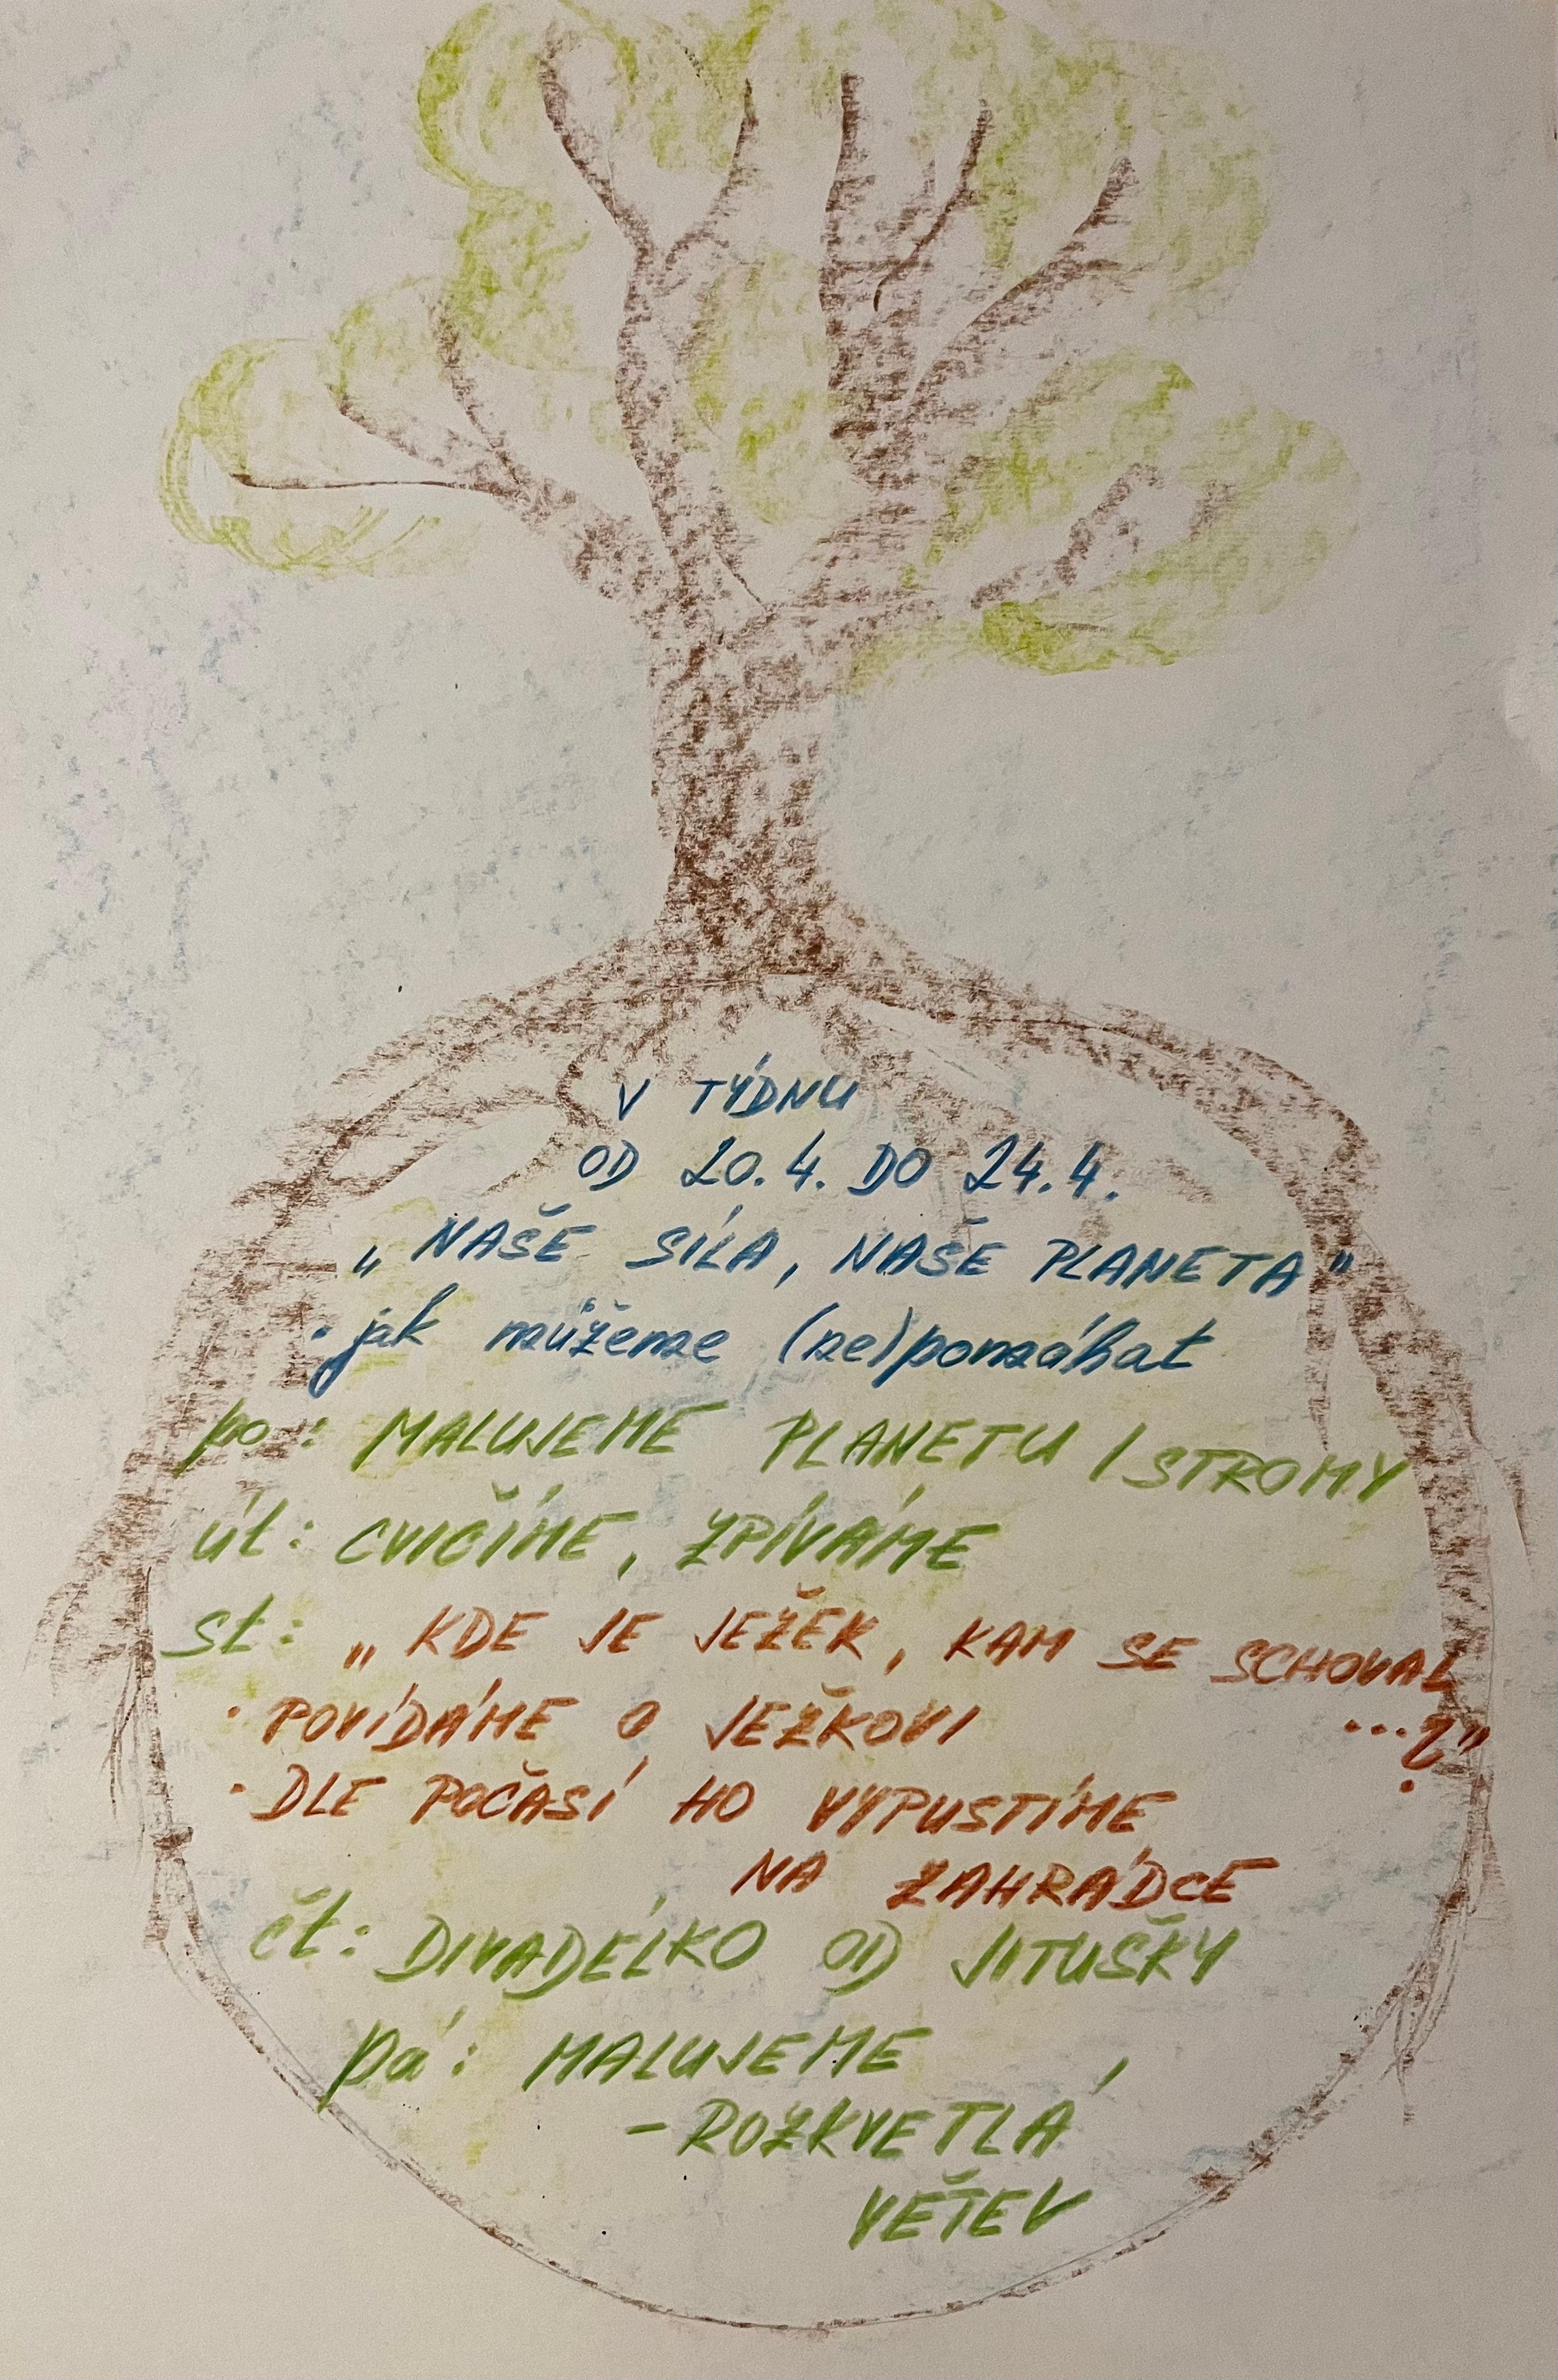 V TÝDNU
OD 20.4. DO 24.4.
„NAŠE SÍLA, NAŠE PLANETA"
· jak můžeme (ne)pomáhat
po: MALUJEME PLANETU / STROMY
út: CVIČÍME, ZPÍVÁME
st: „KDE JE JEŽEK, KAM SE SCHOVAL
...?"
· POVÍDÁME O JEŽKOVI
· DLE POČASÍ HO VYPUSTÍME
NA ZAHRÁDCE
čt: DIVADÉLKO OD JITUŠKY
pá: MALUJEME
- ROZKVETLÁ
VĚTEV